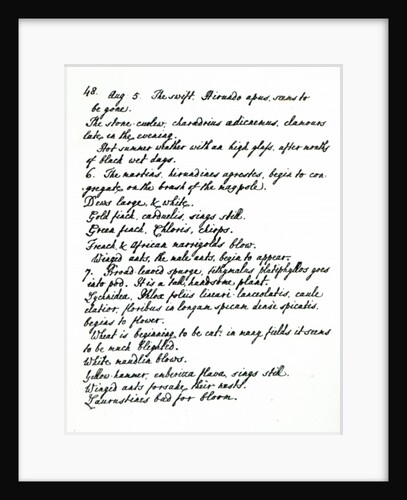 48. Aug 5. The swift, Hirundo apus, seems to
be gone.
The stone-curlew, charadrius œdicnemus, clamours
late in the evening.
Hot summer weather with an high glass, after months
of black wet days.
6. The martins, hirundines agrestes, begin to con
gregate on the brush of the may pole.
Dews large, & white.
Gold finch, carduelis, sings still.
Green finch, Chloris, chirps.
French & African marrigolds blow.
Winged ants, the male ants, begin to appear.
7. Broad leaved spurge, tithymalus platiphyllos goes
into pod. It is a tall, handsome plant.
Lychnidea, Phlox foliis lineari-lanceolatis, caule
elatior, floribus in longam spicam dense spicatis,
begins to flower.
Wheat is beginning to be cut: in many fields it seems
to be much blighted.
White maudlin blows.
Yellow hammer, emberiza flava, sings still.
Winged ants forsake their nests.
Laurustines bud for bloom.